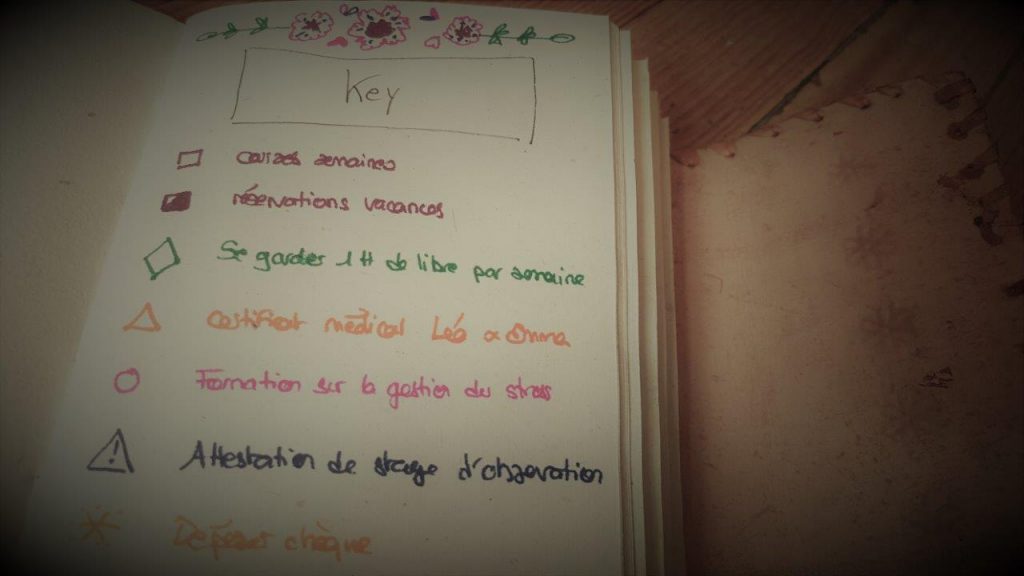 Key
courses semaines
réservations vacances
Se garder 1H de libre par semaine
Certificat médical Léo & Emma
Formation sur la gestion du stress
Attestation de stage d'observation
Déposer chèque